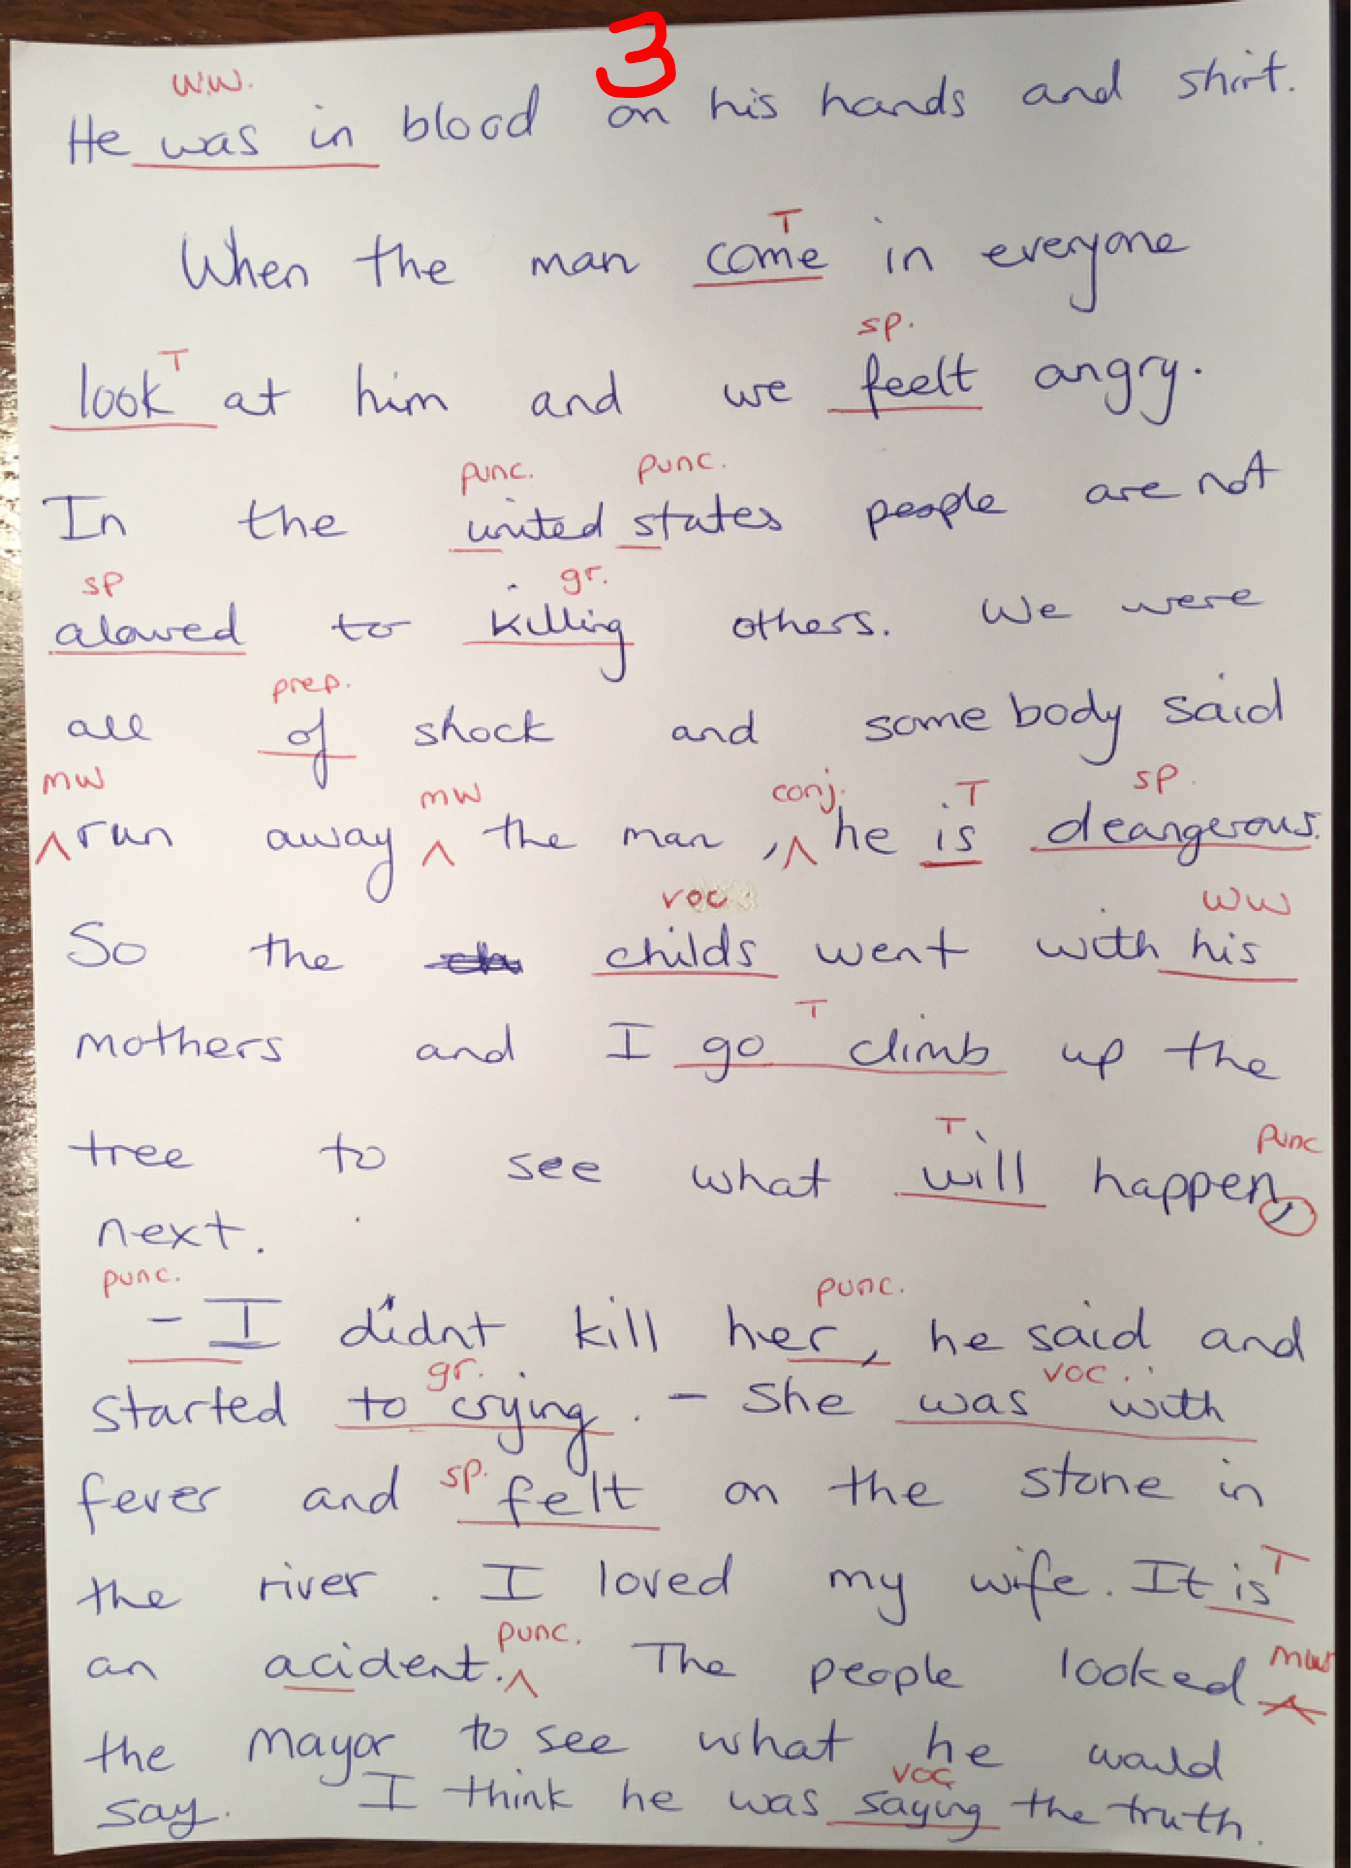 3
w.w.
He was in blood on his hands and shirt.
T
When the man come in everyone
T sp.
look at him and we feelt angry.
punc. punc.
In the united states people are not
sp gr.
alowed to killing others. We were
prep.
all of shock and somebody said
mw mw conj. T sp.
run away the man, he is deangerous.
voc ww
So the childs went with his
T
mothers and I go climb up the
T punc
tree to see what will happen,
next.
punc. punc.
- I didnt kill her, he said and
gr. voc.
started to crying. - She was with
sp.
fever and felt on the stone in
T
the river. I loved my wife. It is
punc. mw
an acident. The people looked
the mayor to see what he would
voc
say. I think he was saying the truth.